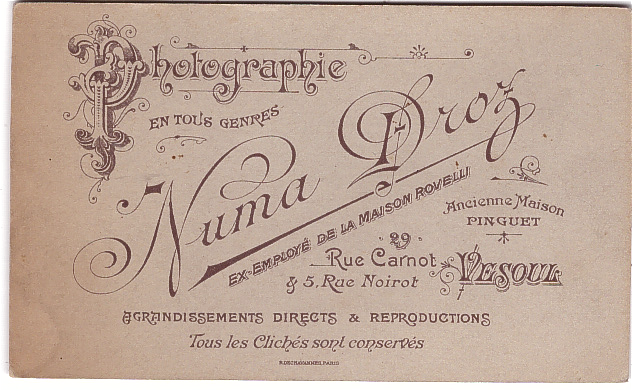 Photographie
EN TOUS GENRES
Numa Droz
EX-EMPLOYÉ DE LA MAISON ROVELLI
Ancienne Maison
PINGUET
29
Rue Carnot
& 5, Rue Noirot
VESOUL
AGRANDISSEMENTS DIRECTS & REPRODUCTIONS
Tous les Clichés sont conservés